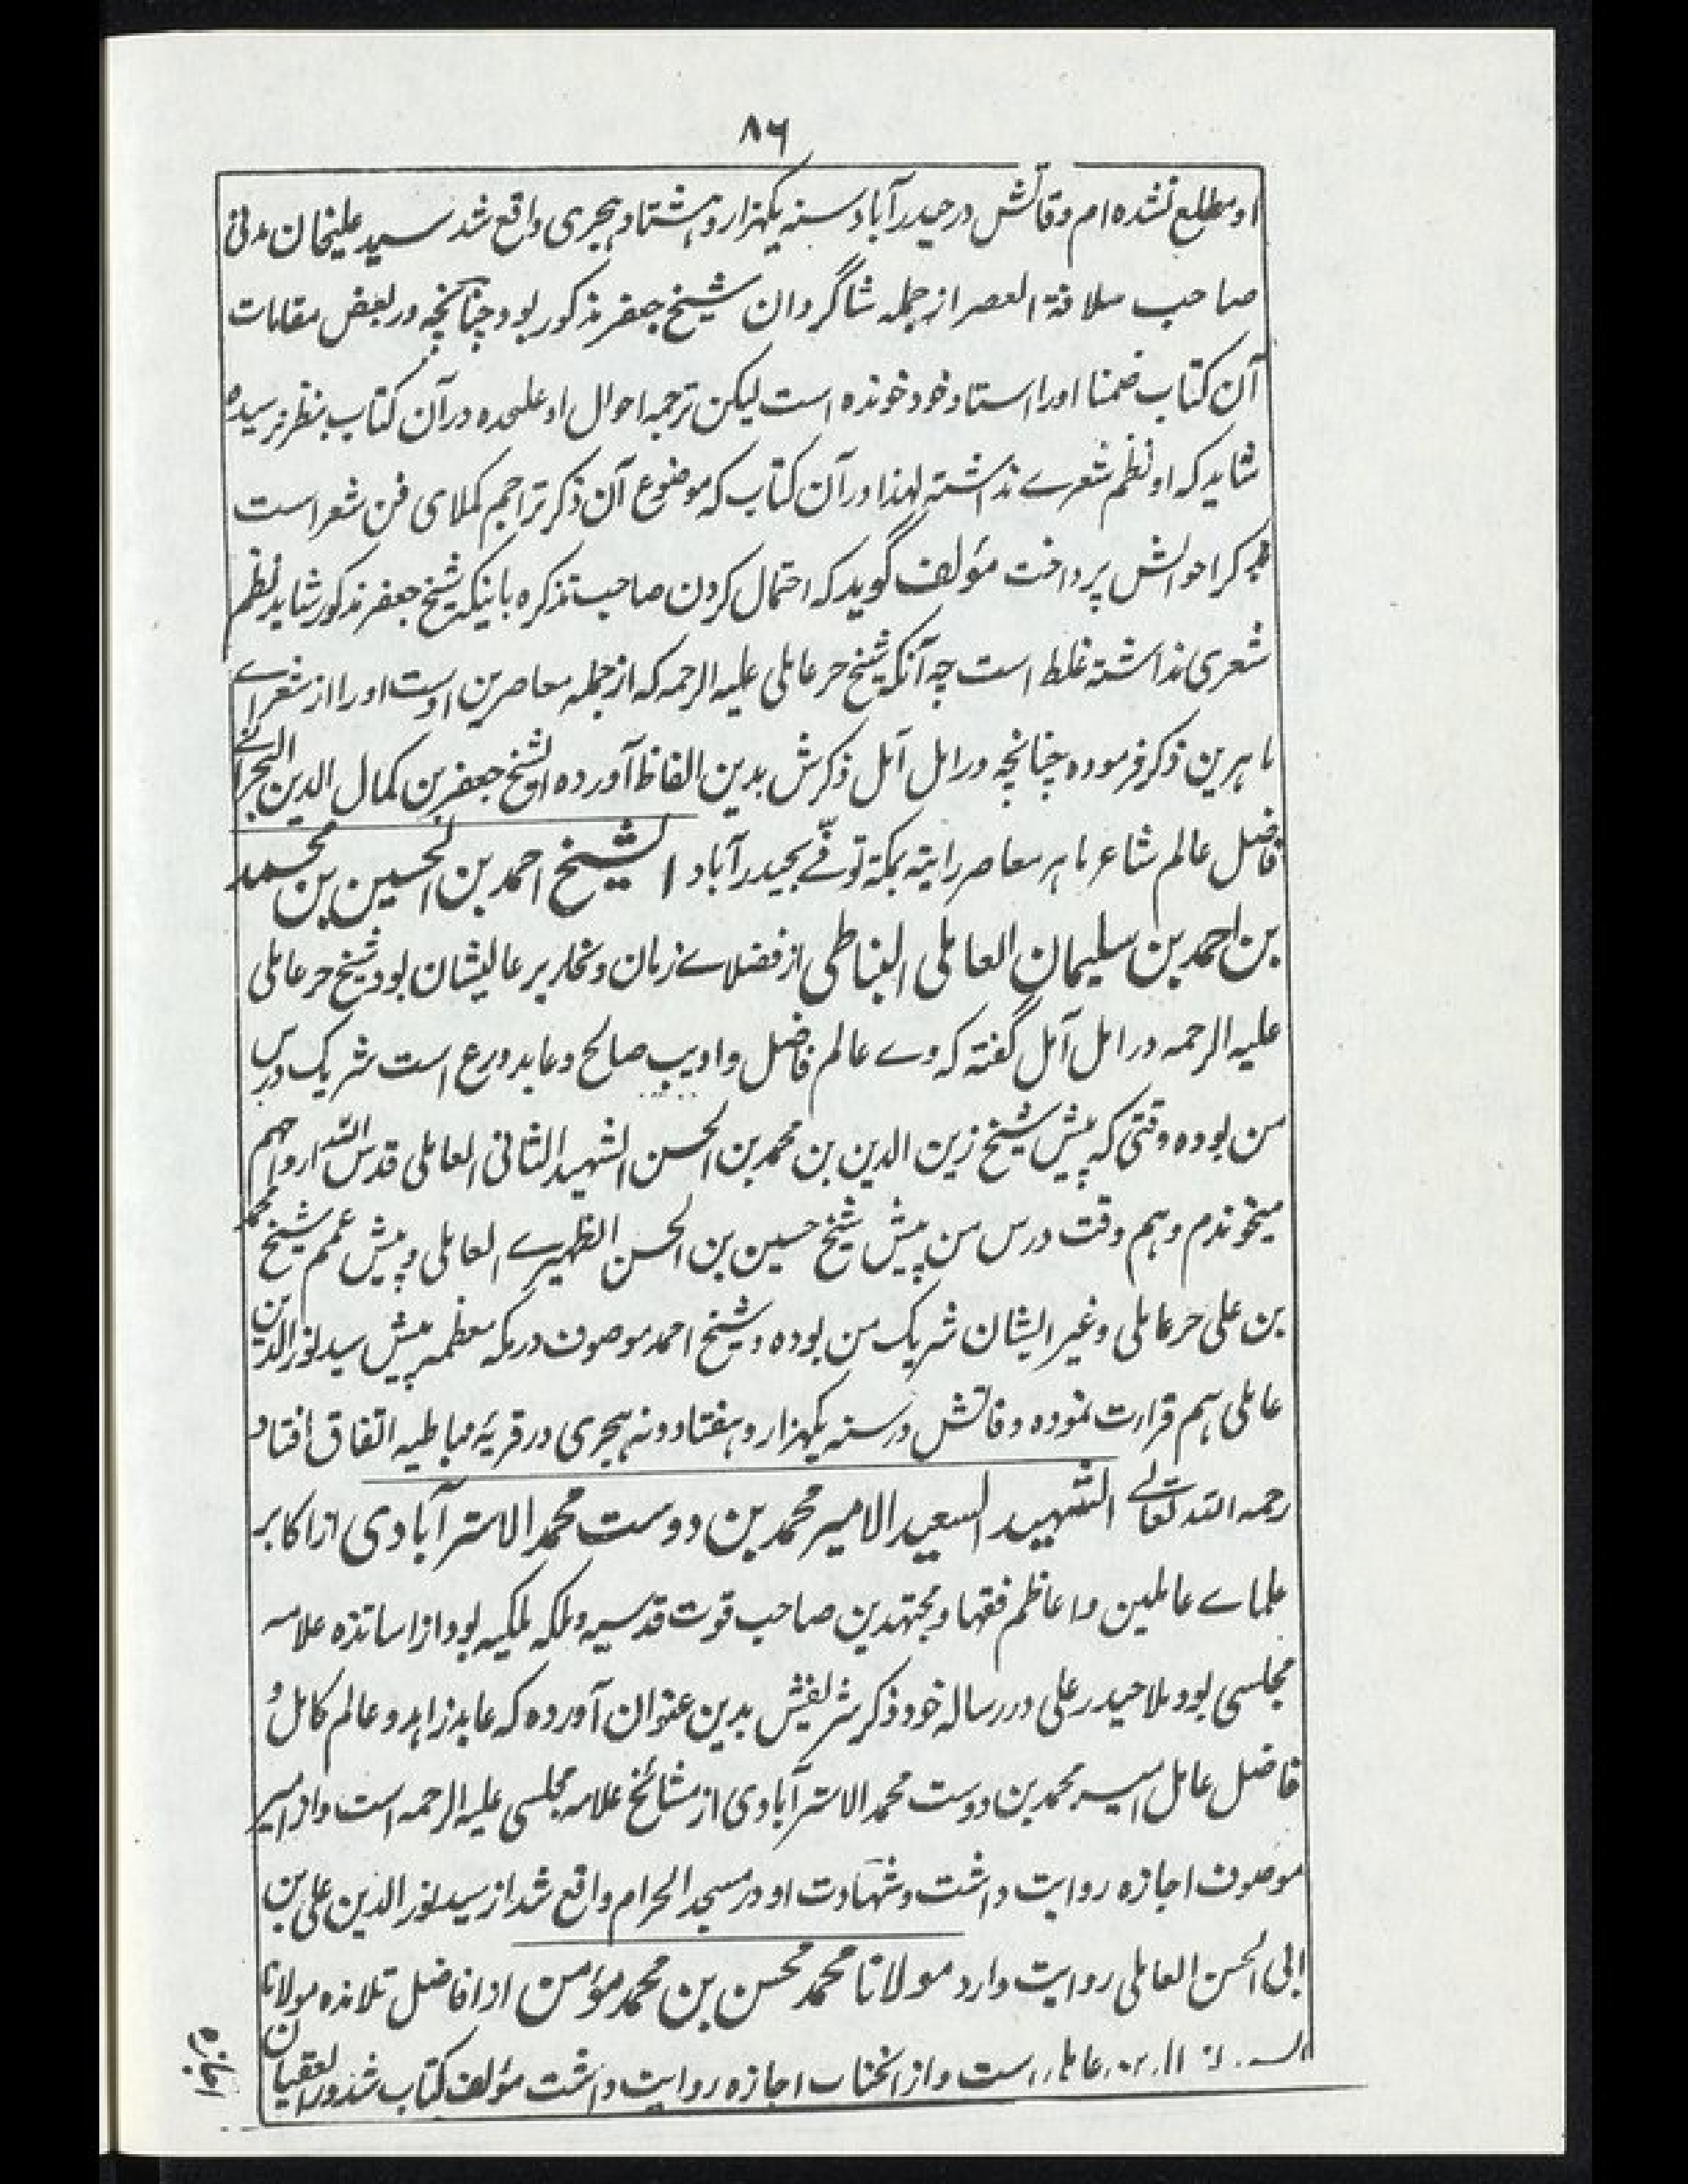 ۸۶
او مطلع نشده ام وفاتش در حیدرآباد سنه یکهزار و هشتاد هجری واقع شد سید علیخان مدنی
صاحب سلافة العصر از جمله شاگردان شیخ جعفر مذکور بود چنانچه در بعض مقامات
آن کتاب ضمنا اورا استاد خود خونده است لیکن ترجمه احوال او علحده در آن کتاب بنظر نرسیده
شاید که او نظم شعرے نداشته لهذا در آن کتاب که موضوع آن ذکر تراجم کملای فن شعر است
بذکر احوالش پرداخت مؤلف گوید که احتمال کردن صاحب تذکره باینکه شیخ جعفر مذکور شاید نظم
شعری نداشته غلط است چه آنکه شیخ حر عاملی علیه الرحمه که از جمله معاصرین اوست اورا از شعراے
ماهرین ذکر فرموده چنانچه در امل آمل ذکرش بدین الفاظ آورده الشیخ جعفر بن کمال الدین البحرانے
فاضل عالم شاعر ماهر معاصر رایته بمکة توفے بحیدرآباد الشیخ احمد بن الحسین بن محمد
بن احمد بن سلیمان العاملی النباطی از فضلاے زمان و نحاریر عالیشان بود شیخ حر عاملی
علیه الرحمه در امل آمل گفته که وے عالم فاضل و ادیب صالح و عابد ورع است شریک درس
من بوده وقتی که پیش شیخ زین الدین بن محمد بن الحسن الشهید الثانی العاملی قدس الله ارواحهم
میخوندم و هم وقت درس من پیش شیخ حسین بن الحسن الظهیرے العاملی و پیش عمم شیخ محمد
بن علی حر عاملی و غیر ایشان شریک من بوده و شیخ احمد موصوف در مکه معظمه پیش سید نور الدین
عاملی هم قرارت نموده وفاتش در سنه یکهزار و هفتاد و نه هجری در قریهٔ نباطیه اتفاق افتاد
رحمه الله تعالے الشهید السعید الامیر محمد بن دوست محمد الاسترآبادی از اکابر
علماے عاملین و اعاظم فقها و مجتهدین صاحب قوت قدسیه و ملکه ملکیه بود از اساتذه علامه
مجلسی بود ملا حیدر علی در رساله خود ذکر شریفش بدین عنوان آورده که عابد زاهد و عالم کامل و
فاضل عامل امیر محمد بن دوست محمد الاسترآبادی از مشائخ علامه مجلسی علیه الرحمه است و از امیر
موصوف اجازه روایت داشت و شهادت او در مسجد الحرام واقع شد از سید نور الدین علی بن
ابی الحسن العاملی روایت دارد مولانا محمد محسن بن محمد مؤمن از افاضل تلامذه مولانا
عاملی است و از انجناب اجازه روایت داشت مؤلف کتاب شذور العقیان
اجازه